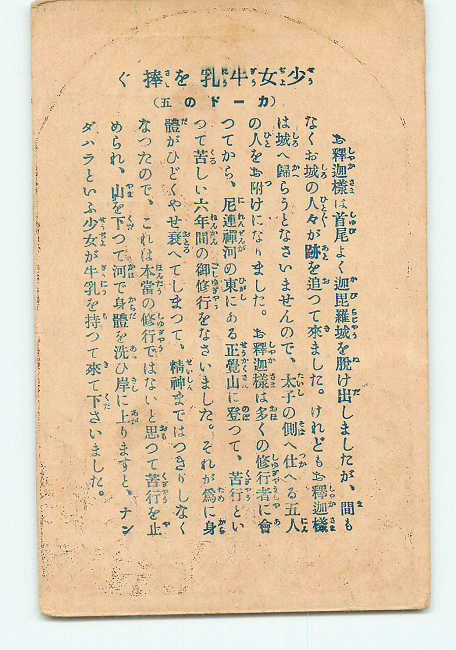 少女牛乳を捧ぐ
(カードの五)
お釋迦樣は首尾よく迦毘羅城を脱け出しましたが、間も
なくお城の人々が跡を追つて來ました。けれどもお釋迦樣
は城へ歸らうとなさいませんので、太子の側へ仕へる五人
の人をお附けになりました。お釋迦樣は多くの修行者に會
つてから、尼連禪河の東にある正覺山に登つて、苦行とい
つて苦しい六年間の御修行をなさいました。それが爲に身
體がひどくやせ衰へてしまつて、精神まではつきりしなく
なつたので、これは本當の修行ではないと思つて苦行を止
められ、山を下つて河で身體を洗ひ岸に上りますと、ナン
ダハラといふ少女が牛乳を持つて來て下さいました。